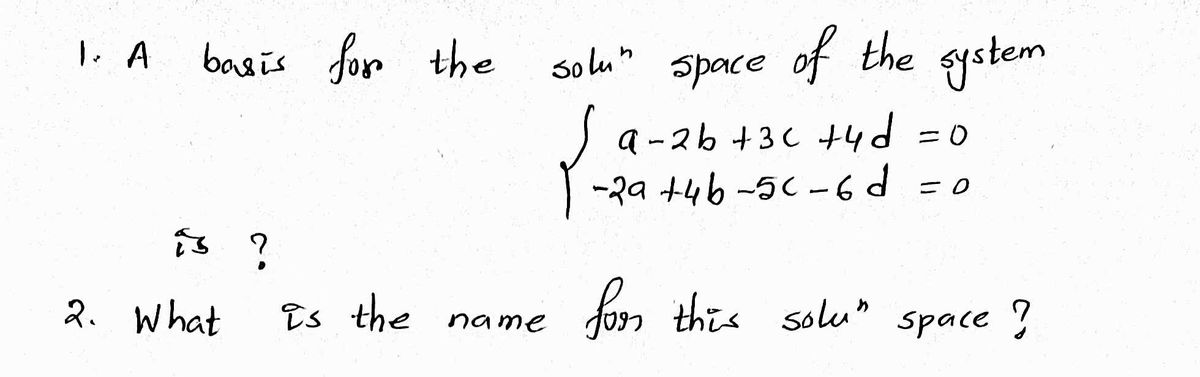 1. A basis for the soluⁿ space of the system
a - 2b + 3c + 4d = 0
-2a + 4b - 5c - 6d = 0
is ?
2. What is the name for this soluⁿ space ?